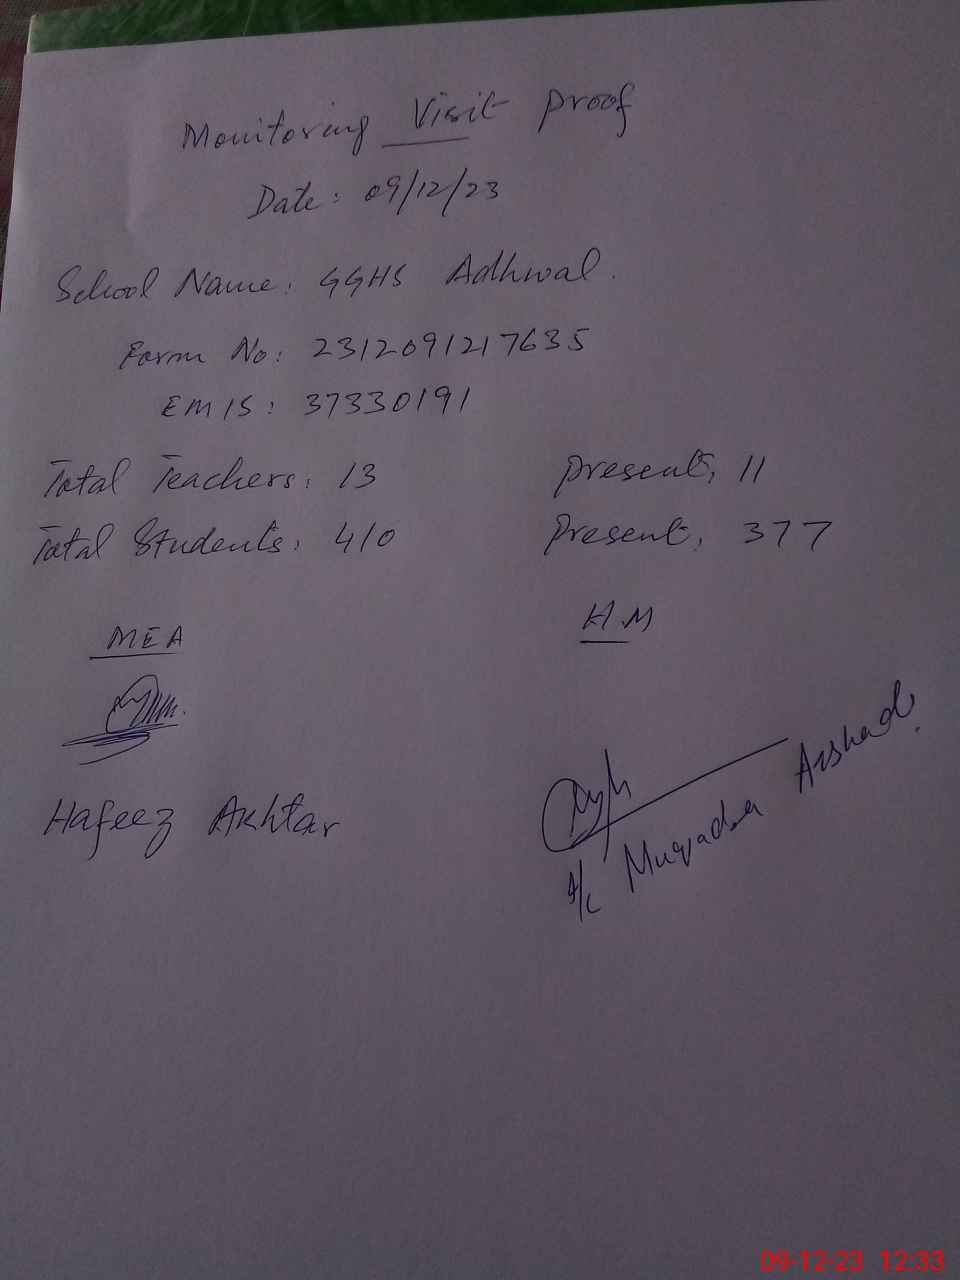 Monitoring Visit Proof
Date: 09/12/23
School Name: GGHS Adhwal.
Form No: 2312091217635
EMIS: 37330191
Total Teachers: 13 Present: 11
Total Students: 410 Present: 377
MEA H.M
Hafeez Akhtar
I/C Muqadsa Arshad.
09-12-23 12:33